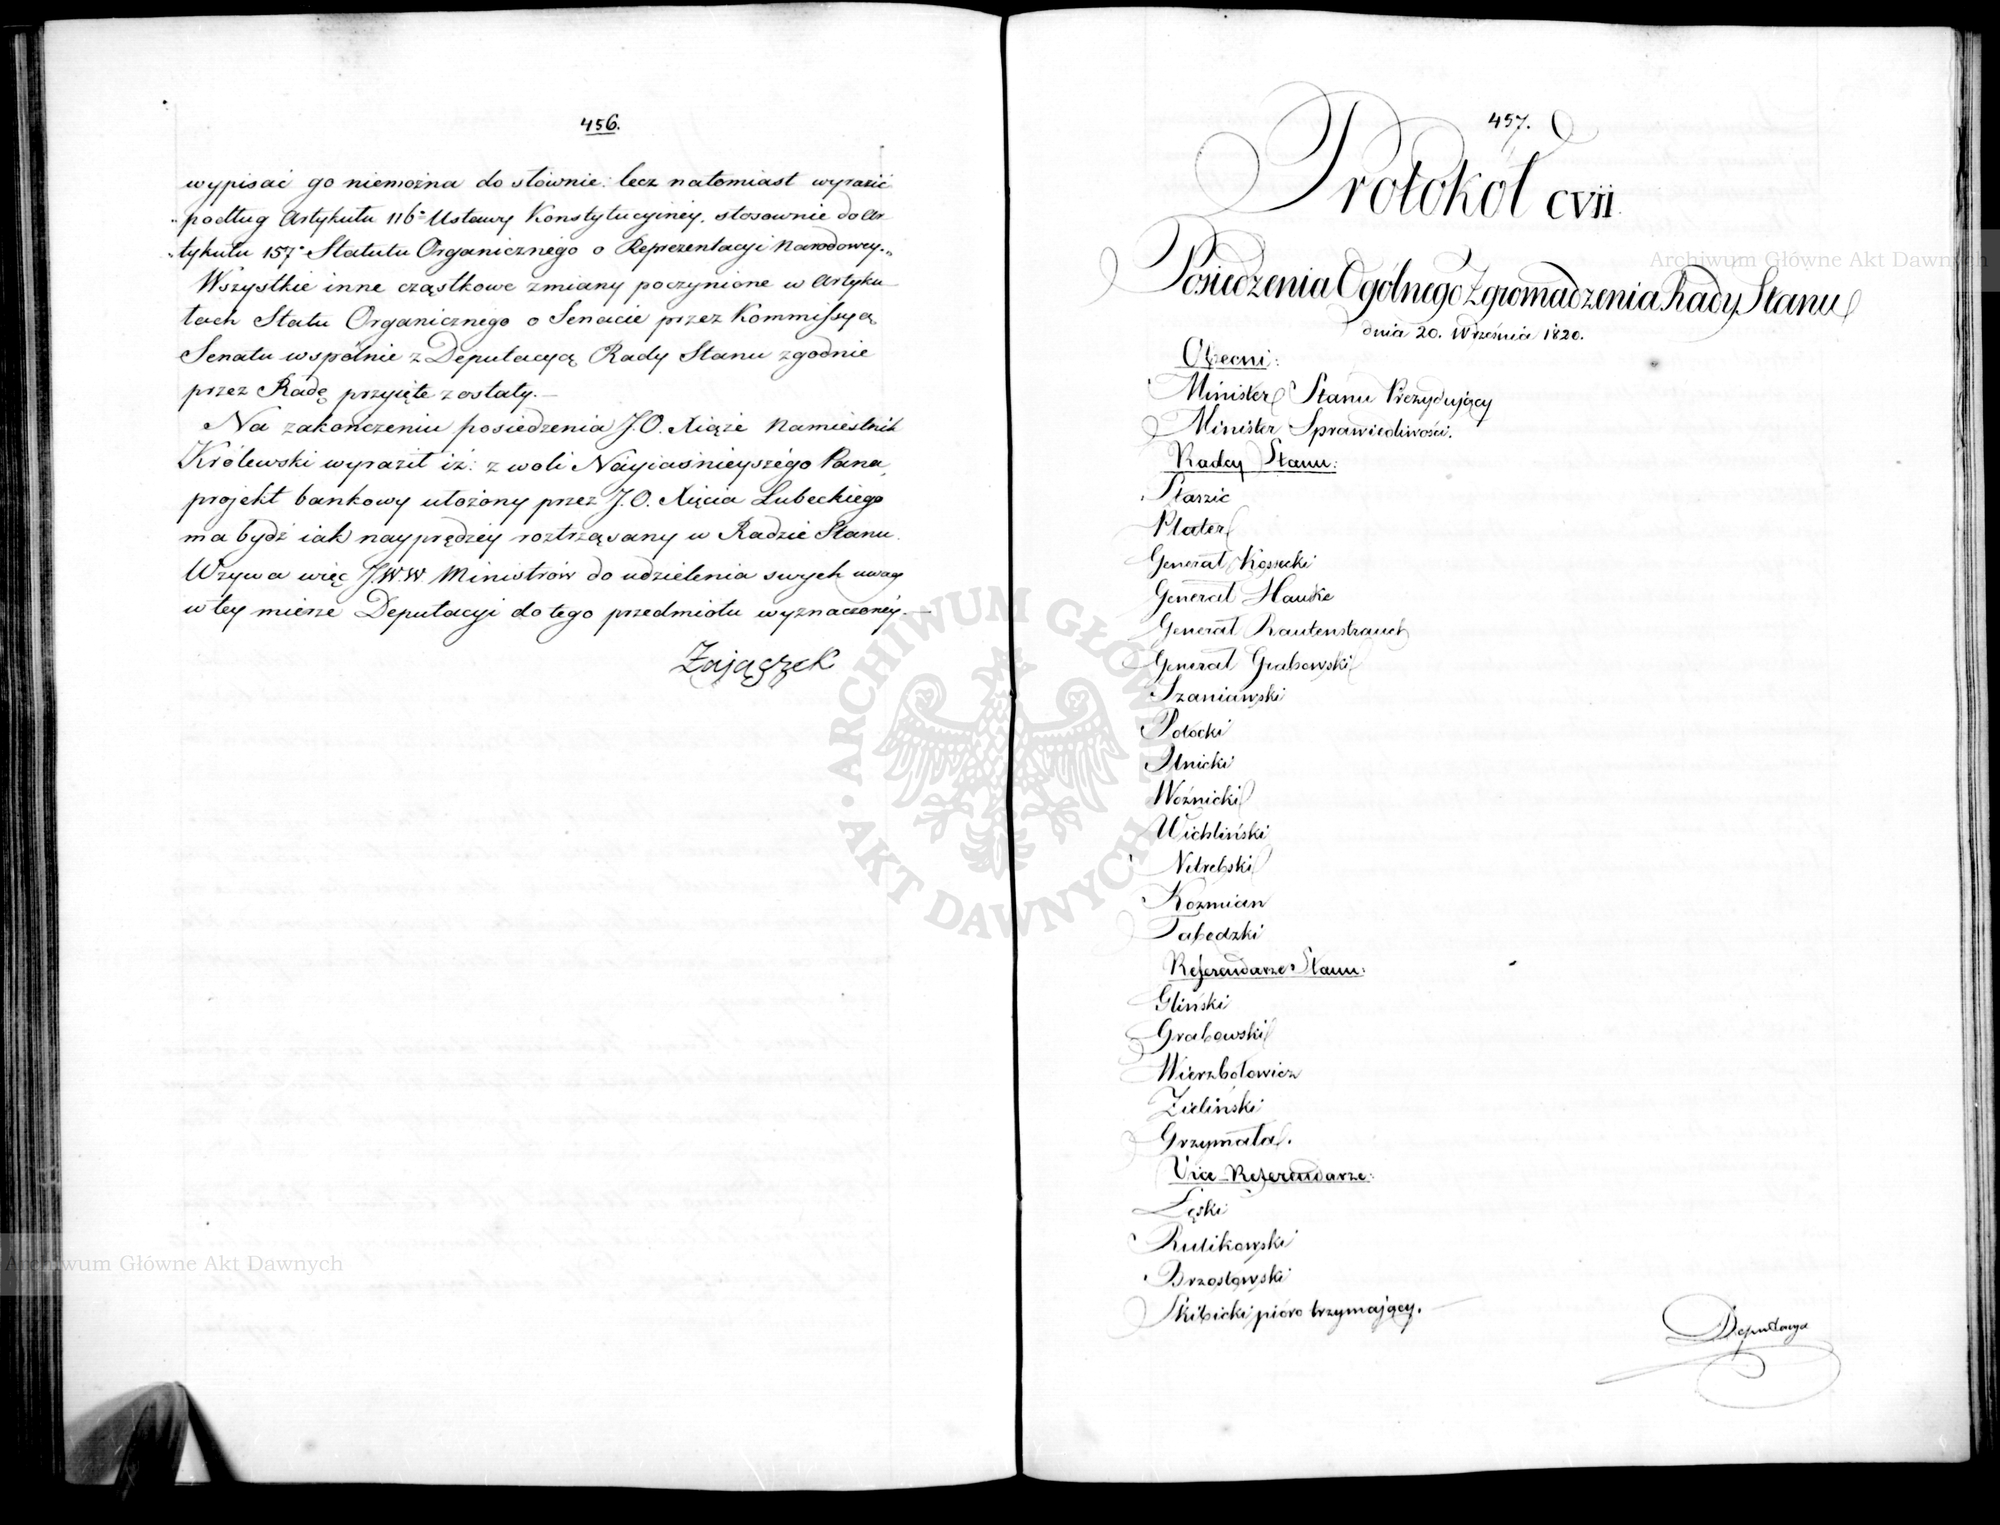 456.
wypisać go niemożna do słównie: lecz natomiast wyrazić
„podług Artykułu 116º Ustawy Konstytucyiney, stosownie do Ar
„tykułu 157º Statutu Organicznego o Reprezentacyi Narodowey.„
Wszystkie inne cząstkowe zmiany poczynione w Artyku-
łach Statu Organicznego o Senacie przez Kommissyą
Senatu wspólnie z Deputacyą Rady Stanu zgodnie
przez Radę przyięte zostały.—
Na zakończeniu posiedzenia J.O. Xiąże Namiestnik
Królewski wyraził iż: z woli Nayiaśnieyszego Pana,
projekt bankowy ułożony przez J.O. Xięcia Lubeckiego
ma bydź iak nayprędzey roztrząsany w Radzie Stanu.
Wzywa więc J.W.W. Ministrów do udzielenia swych uwag
w tey mierze Deputacyi do tego przedmiotu wyznaczoney.—
Zajączek
457.
Protokół CVII.
Posiedzenia Ogólnego Zgromadzenia Rady Stanu
dnia 20. Września 1820.
Obecni:
Minister Stanu Prezydujący
Minister Sprawiedliwości.
Radcy Stanu:
Staszic
Plater
Generał Kossecki
Generał Hauke
Generał Rautenstrauch
Generał Grabowski
Szaniawski
Potocki
Ilnicki
Woźnicki
Wichliński
Netrebski
Kozmian
Tabędzki
Referendarze Stanu:
Gliński
Grabowski
Wierzbołowicz
Zieliński
Grzymała.
Vice-Referendarze:
Łęski
Rutikowski
Brzostowski
Skibicki pióro trzymający.—
Deputacya
Archiwum Główne Akt Dawnych
ARCHIWUM GŁÓWNE AKT DAWNYCH
Archiwum Główne Akt Dawnych